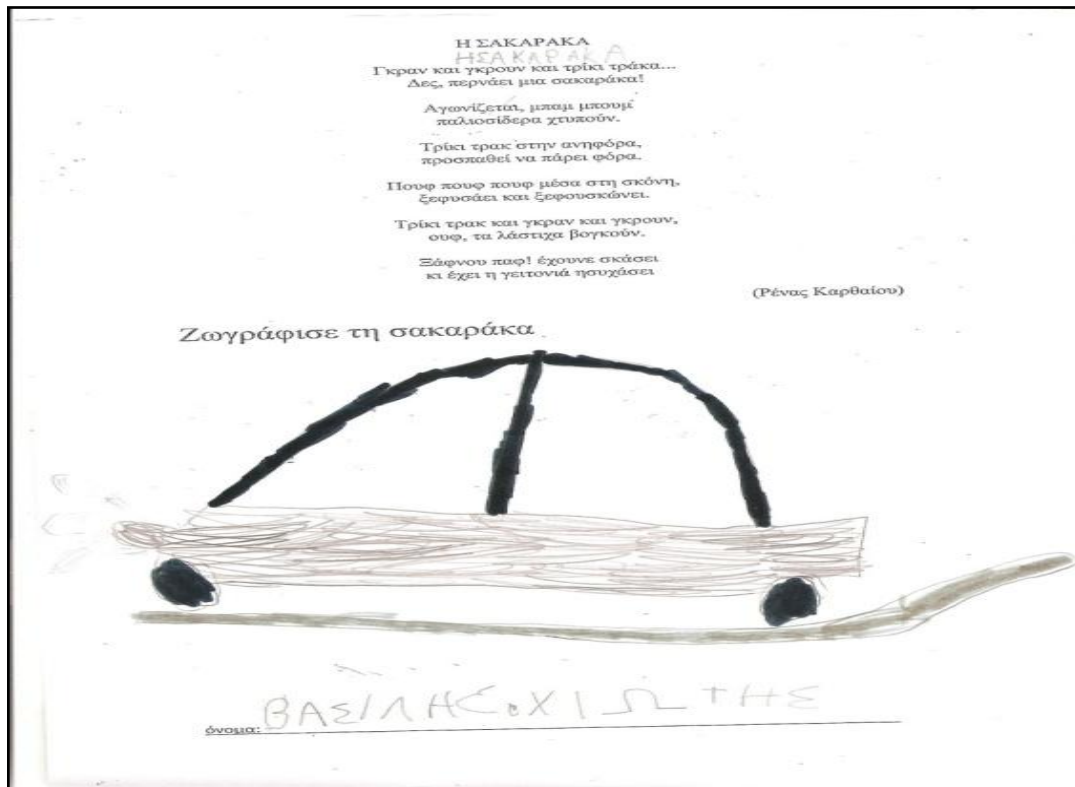 Η ΣΑΚΑΡΑΚΑ
ΗΣΑΚΑΡΑΚΑ
Γκραν και γκρουν και τρίκι τράκα...
Δες, περνάει μια σακαράκα!
Αγωνίζεται, μπαμ μπουμ
παλιοσίδερα χτυπούν.
Τρίκι τρακ στην ανηφόρα,
προσπαθεί να πάρει φόρα.
Πουφ πουφ πουφ μέσα στη σκόνη,
ξεφυσάει και ξεφουσκώνει.
Τρίκι τρακ και γκραν και γκρουν,
ουφ, τα λάστιχα βογκούν.
Ξάφνου παφ! έχουνε σκάσει
κι έχει η γειτονιά ησυχάσει
(Ρένας Καρθαίου)
Ζωγράφισε τη σακαράκα
όνομα: ΒΑΣΙΛΗΣ.ΧΙΩΤΗΣ